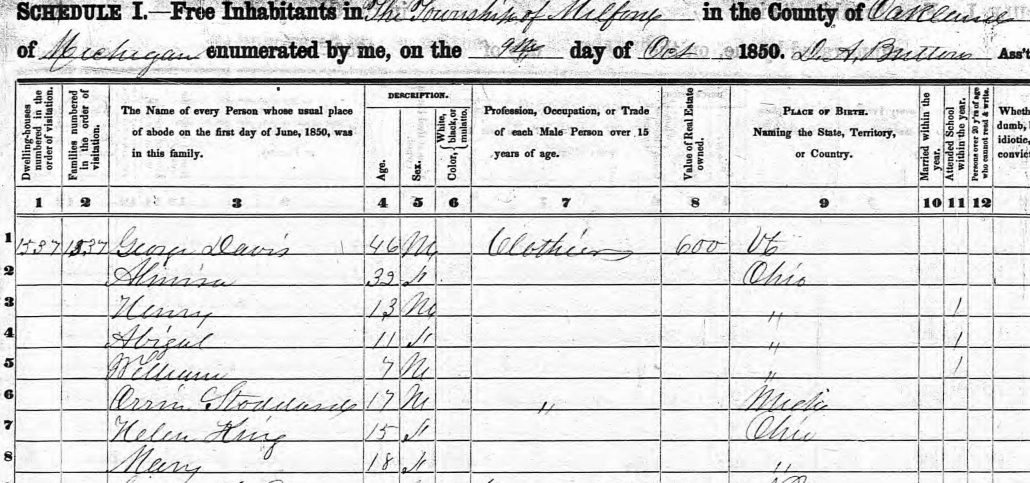 SCHEDULE I.—Free Inhabitants in The Township of Milford in the County of Oakland
of Michigan enumerated by me, on the 9th day of Oct 1850. Ass't
Dwelling-houses numbered in the order of visitation.
Families numbered in the order of visitation.
The Name of every Person whose usual place of abode on the first day of June, 1850, was in this family.
DESCRIPTION.
Age.
Sex.
Color, White, black, or mulatto.
Profession, Occupation, or Trade of each Male Person over 15 years of age.
Value of Real Estate owned.
PLACE OF BIRTH. Naming the State, Territory, or Country.
Married within the year.
Attended School within the year.
Persons over 20 y'rs of age who cannot read & write.
Wheth
dumb,
idiotic,
convic
1 2 3 4 5 6 7 8 9 10 11 12
1 1537 1537 George Davis 46 M Clothier 600 Vt
2 Almira 32 f Ohio
3 Henry 13 M " 1
4 Abigal 11 f " 1
5 William 7 M " 1
6 Orrin Stoddard 17 M " Mich
7 Helen King 15 f Ohio
8 Mary 18 f "